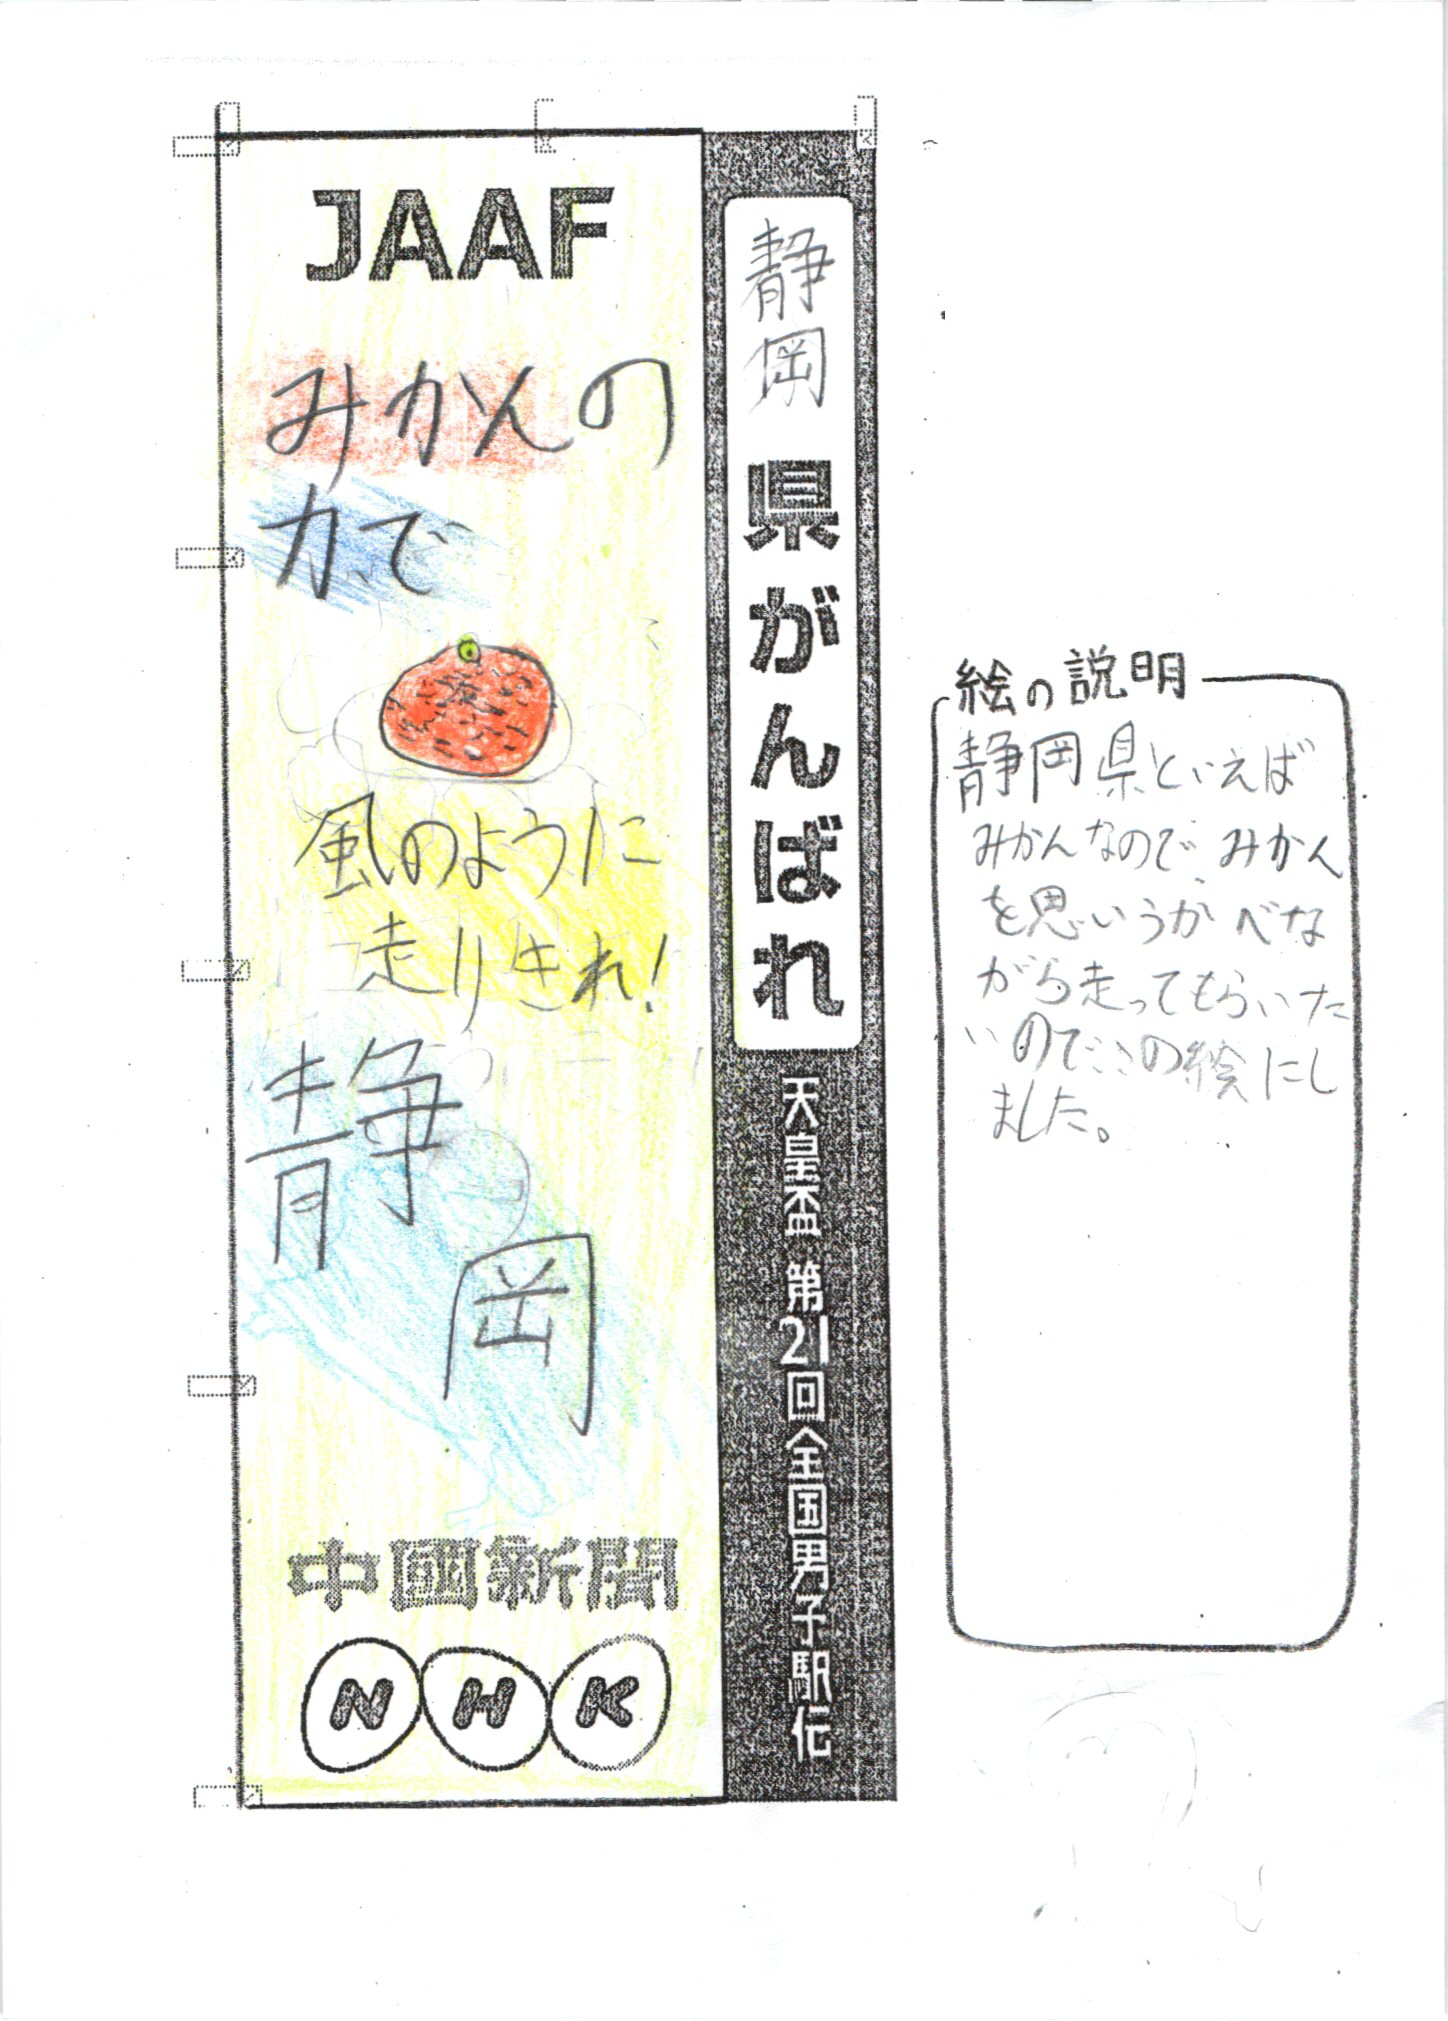 JAAF
みかんの
力で
風のように
走りきれ!
静
岡
中國新聞
NHK
静岡県がんばれ
天皇盃 第21回全国男子駅伝
絵の説明
静岡県といえば
みかんなので、みかん
を思いうかべな
がら走ってもらいた
いのでこの絵にし
ました。